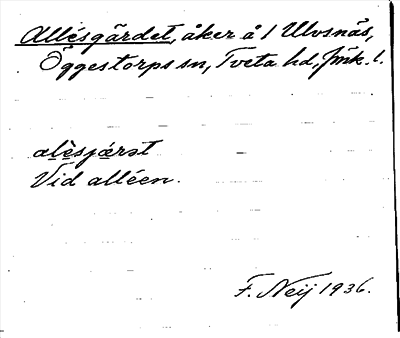 Allésgärdet, åker å 1 Ulvsnäs,
Öggestorps sn, Tveta hd, Jönk. l.
alèsjæ̀rət
Vid alléen.
F. Neij 1936.